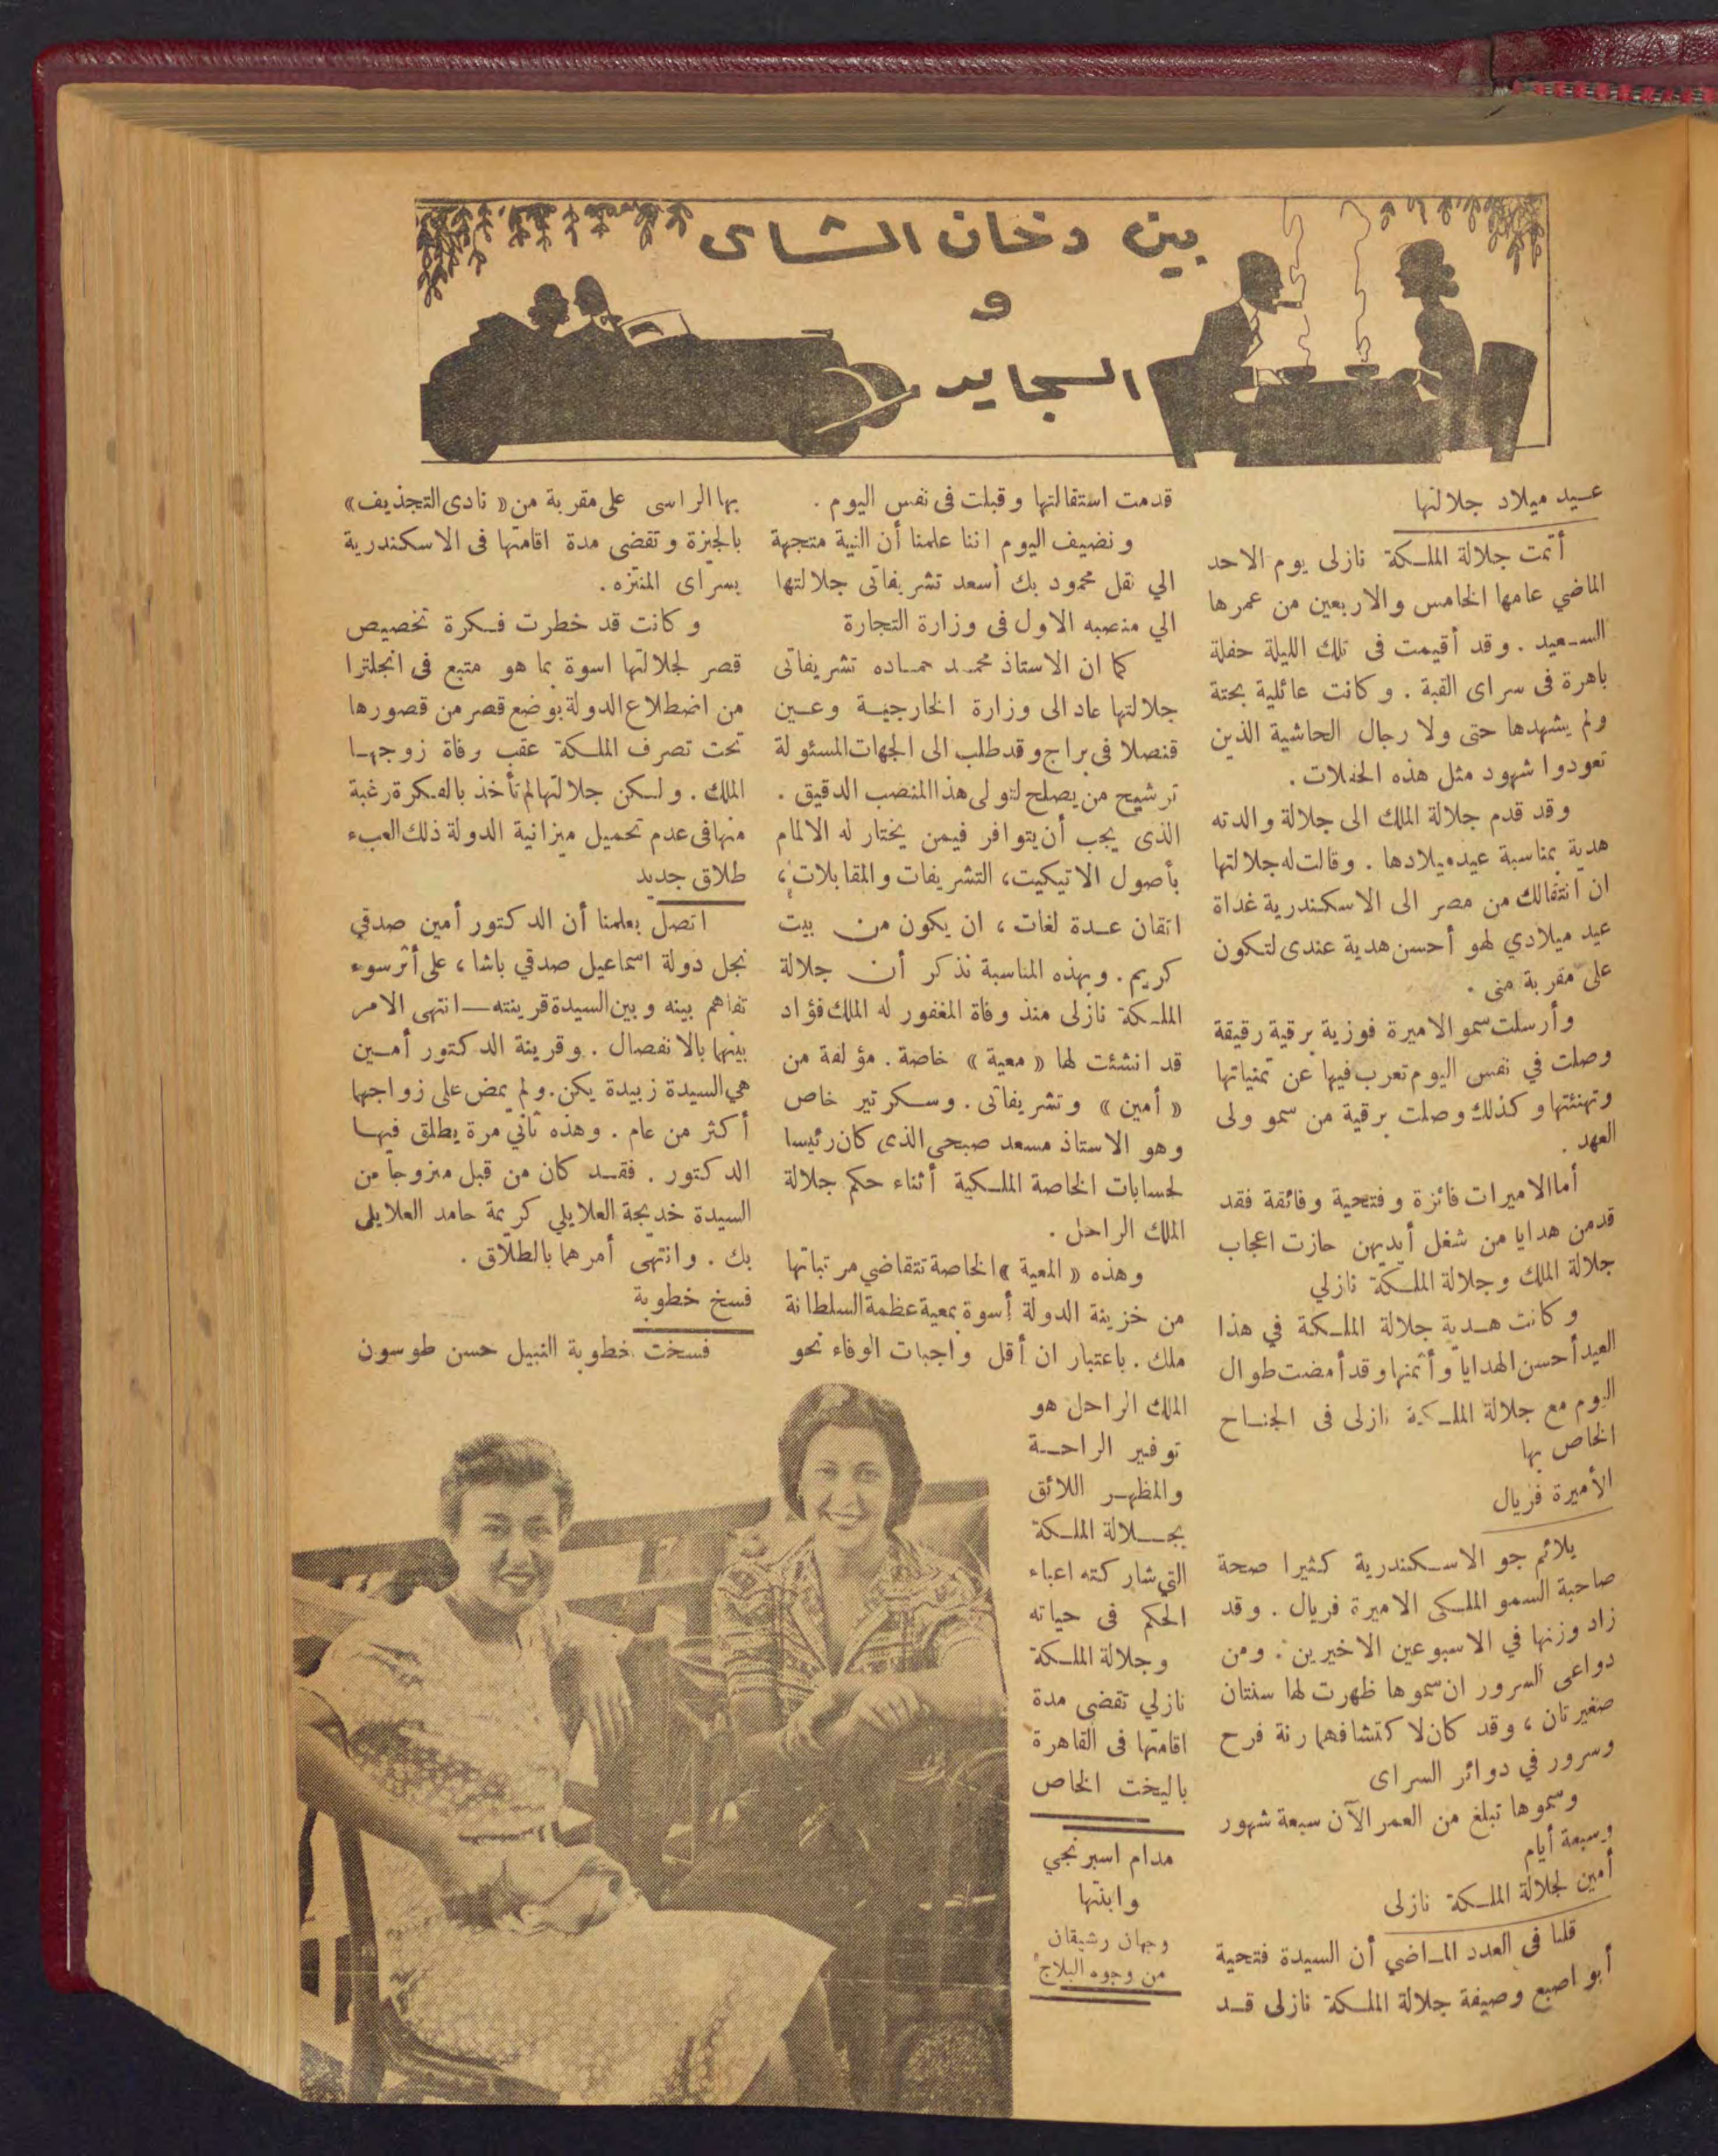 بين دخان الشاى
و
السجاير
عـيد ميلاد جلالتها
أتمت جلالة الملـكة نازلى يوم الاحد
الماضي عامها الخامس والاربعين من عمرها
السـعيد . وقد أقيمت فى تلك الليلة حفلة
باهرة فى سراى القبة . وكانت عائلية بحتة
ولم يشهدها حتى ولا رجال الحاشية الذين
تعودوا شهود مثل هذه الحفلات .
وقد قدم جلالة الملك الى جلالة والدته
هدية بمناسبة عيد ميلادها . وقالت له جلالتها
ان انتقالك من مصر الى الاسكندرية غداة
عيد ميلادي لهو أحسن هدية عندى لتكون
على مقربة منى .
وأرسلت سمو الاميرة فوزية برقية رقيقة
وصلت في نفس اليوم تعرب فيها عن تمنياتها
وتهنئتها وكذلك وصلت برقية من سمو ولى
العهد .
أما الاميرات فائزة وفتحية وفائقة فقد
قدمن هدايا من شغل أيديهن حازت اعجاب
جلالة الملك وجلالة الملـكة نازلي
وكانت هـدية جلالة الملـكة في هذا
العيد أحسن الهدايا وأثمنها وقد أمضت طوال
اليوم مع جلالة الملـكة نازلى فى الجنـاح
الخاص بها
الأميرة فريال
يلائم جو الاسـكندرية كثيرا صحة
صاحبة السمو الملـكى الاميرة فريال . وقد
زاد وزنها في الاسبوعين الاخيرين . ومن
دواعى السرور ان سموها ظهرت لها سنتان
صغيرتان ، وقد كان لاكتشافهما رنة فرح
وسرور في دوائر السراى
وسموها تبلغ من العمر الآن سبعة شهور
وسبعة أيام
أمين لجلالة الملـكة نازلى
قلنا فى العدد المـاضي أن السيدة فتحية
أبو اصبع وصيفة جلالة الملـكة نازلى قـد
قدمت استقالتها وقبلت فى نفس اليوم .
ونضيف اليوم اننا علمنا أن النية متجهة
الي نقل محمود بك أسعد تشريفاتى جلالتها
الي منصبه الاول فى وزارة التجارة
كما ان الاستاذ محمـد حمـاده تشريفاتى
جلالتها عاد الى وزارة الخارجيـة وعـين
قنصلا فى براج وقد طلب الى الجهات المسئولة
ترشيح من يصلح لتولى هذا المنصب الدقيق .
الذى يجب أن يتوافر فيمن يختار له الالمام
بأصول الاتيكيت، التشريفات والمقابلات،
اتقان عـدة لغات ، ان يكون من بيت
كريم . وبهذه المناسبة نذكر أن جلالة
الملـكة نازلى منذ وفاة المغفور له الملك فؤاد
قد انشئت لها « معية » خاصة . مؤلفة من
« أمين » وتشريفاتى . وسـكرتير خاص
وهو الاستاذ مسعد صبحي الذى كان رئيسا
لحسابات الخاصة الملـكية أثناء حكم جلالة
الملك الراحل .
وهذه « المعية » الخاصة تتقاضي مرتباتها
من خزينة الدولة أسوة بمعية عظمة السلطانة
ملك . باعتبار ان أقل واجبات الوفاء نحو
الملك الراحل هو
توفير الراحـة
والمظهـر اللائق
بجـلالة الملـكة
التي شاركته اعباء
الحكم فى حياته
وجلالة الملـكة
نازلي تقضى مدة
اقامتها فى القاهرة
باليخت الخاص
مدام اسبرنجي
وابنتها
وجهان رشيقان
من وجوه البلاج
بها الراسى على مقربة من « نادى التجذيف »
بالجيزة وتقضى مدة اقامتها فى الاسكندرية
بسراى المنتزه .
وكانت قد خطرت فـكرة تخصيص
قصر لجلالتها اسوة بما هو متبع فى انجلترا
من اضطلاع الدولة بوضع قصر من قصورها
تحت تصرف الملـكة عقب وفاة زوجهـا
الملك . ولـكن جلالتها لم تأخذ بالفـكرة رغبة
منها فى عدم تحميل ميزانية الدولة ذلك العبء
طلاق جديد
اتصل بعلمنا أن الدكتور أمين صدقي
نجل دولة اسماعيل صدقي باشا ، على أثر سوء
تفاهم بينه وبين السيدة قرينته — انتهى الامر
بينهما بالانفصال . وقرينة الدكتور أمـين
هي السيدة زبيدة يكن . ولم يمض على زواجهما
أكثر من عام . وهذه ثاني مرة يطلق فيهـا
الدكتور . فقـد كان من قبل متزوجا من
السيدة خديجة العلايلي كريمة حامد العلايلى
بك . وانتهى أمرهما بالطلاق .
فسخ خطوبة
فسخت خطوبة النبيل حسن طوسون